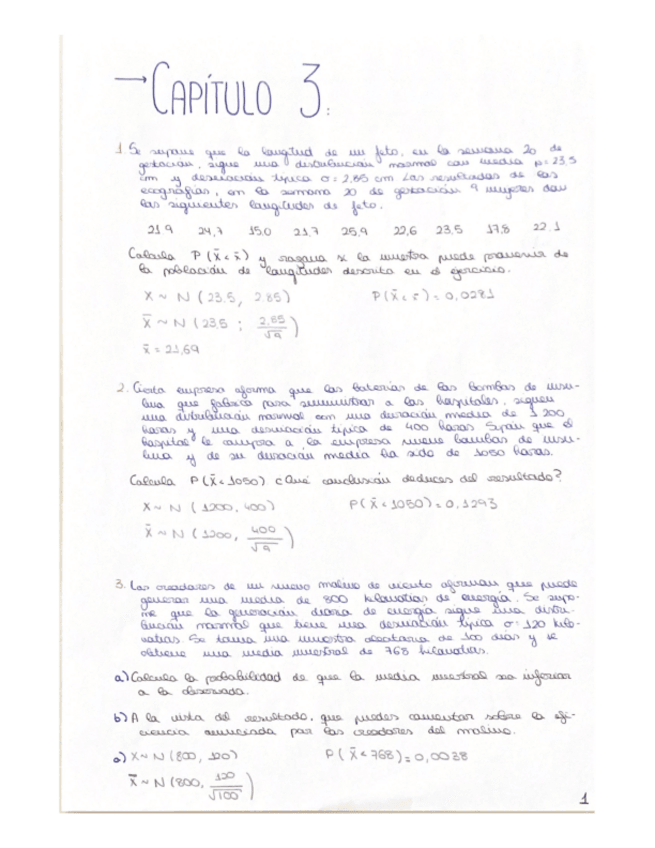 → CAPÍTULO 3:
1. Se supone que la longitud de un feto, en la semana 20 de
gestación, sigue una distribución normal con media μ= 23,5
cm y desviación típica σ= 2,85 cm Los resultados de las
ecografías, en la semana 20 de gestación 9 mujeres dan
las siguientes longitudes de feto.
21.9 24,7 15.0 21.7 25,9 22,6 23.5 17,8 22.1
Calcula P (x̄ < x̄) y razona si la muestra puede provenir de
la población de longitudes descrita en el ejercicio.
X ~ N (23.5, 2.85) P(x̄ < x̄) = 0,0281
X̄ ~ N (23,5 ; 2,85/√9)
x̄ = 21,69
2. Cierta empresa afirma que las baterías de las bombas de insu-
lina que fabrica para suministrar a los hospitales, siguen
una distribución normal con una duración media de 1200
horas y una desviación típica de 400 horas Supón que el
hospital le compra a la empresa nueve bombas de insu-
lina y de su duración media ha sido de 1050 horas.
Calcula P(x̄ < 1050) ¿Qué conclusión deduces del resultado?
X ~ N (1200, 400) P(X̄ < 1050) = 0,1293
X̄ ~ N (1200, 400/√9)
3. Los creadores de un nuevo molino de viento afirman que puede
generar una media de 800 kilovatios de energía. Se supo-
ne que la generación diaria de energía sigue una distri-
bución normal que tiene una desviación típica σ= 120 kilo-
vatios. Se toma una muestra aleatoria de 100 días y se
obtiene una media muestral de 768 kilovatios.
a) Calcula la probabilidad de que la media muestral sea inferior
a la observada.
b) A la vista del resultado, que puedes comentar sobre la efi-
ciencia anunciada por los creadores del molino.
a) X ~ N (800, 120) P( X̄ < 768) = 0,0038
X̄ ~ N (800, 120/√100)
1